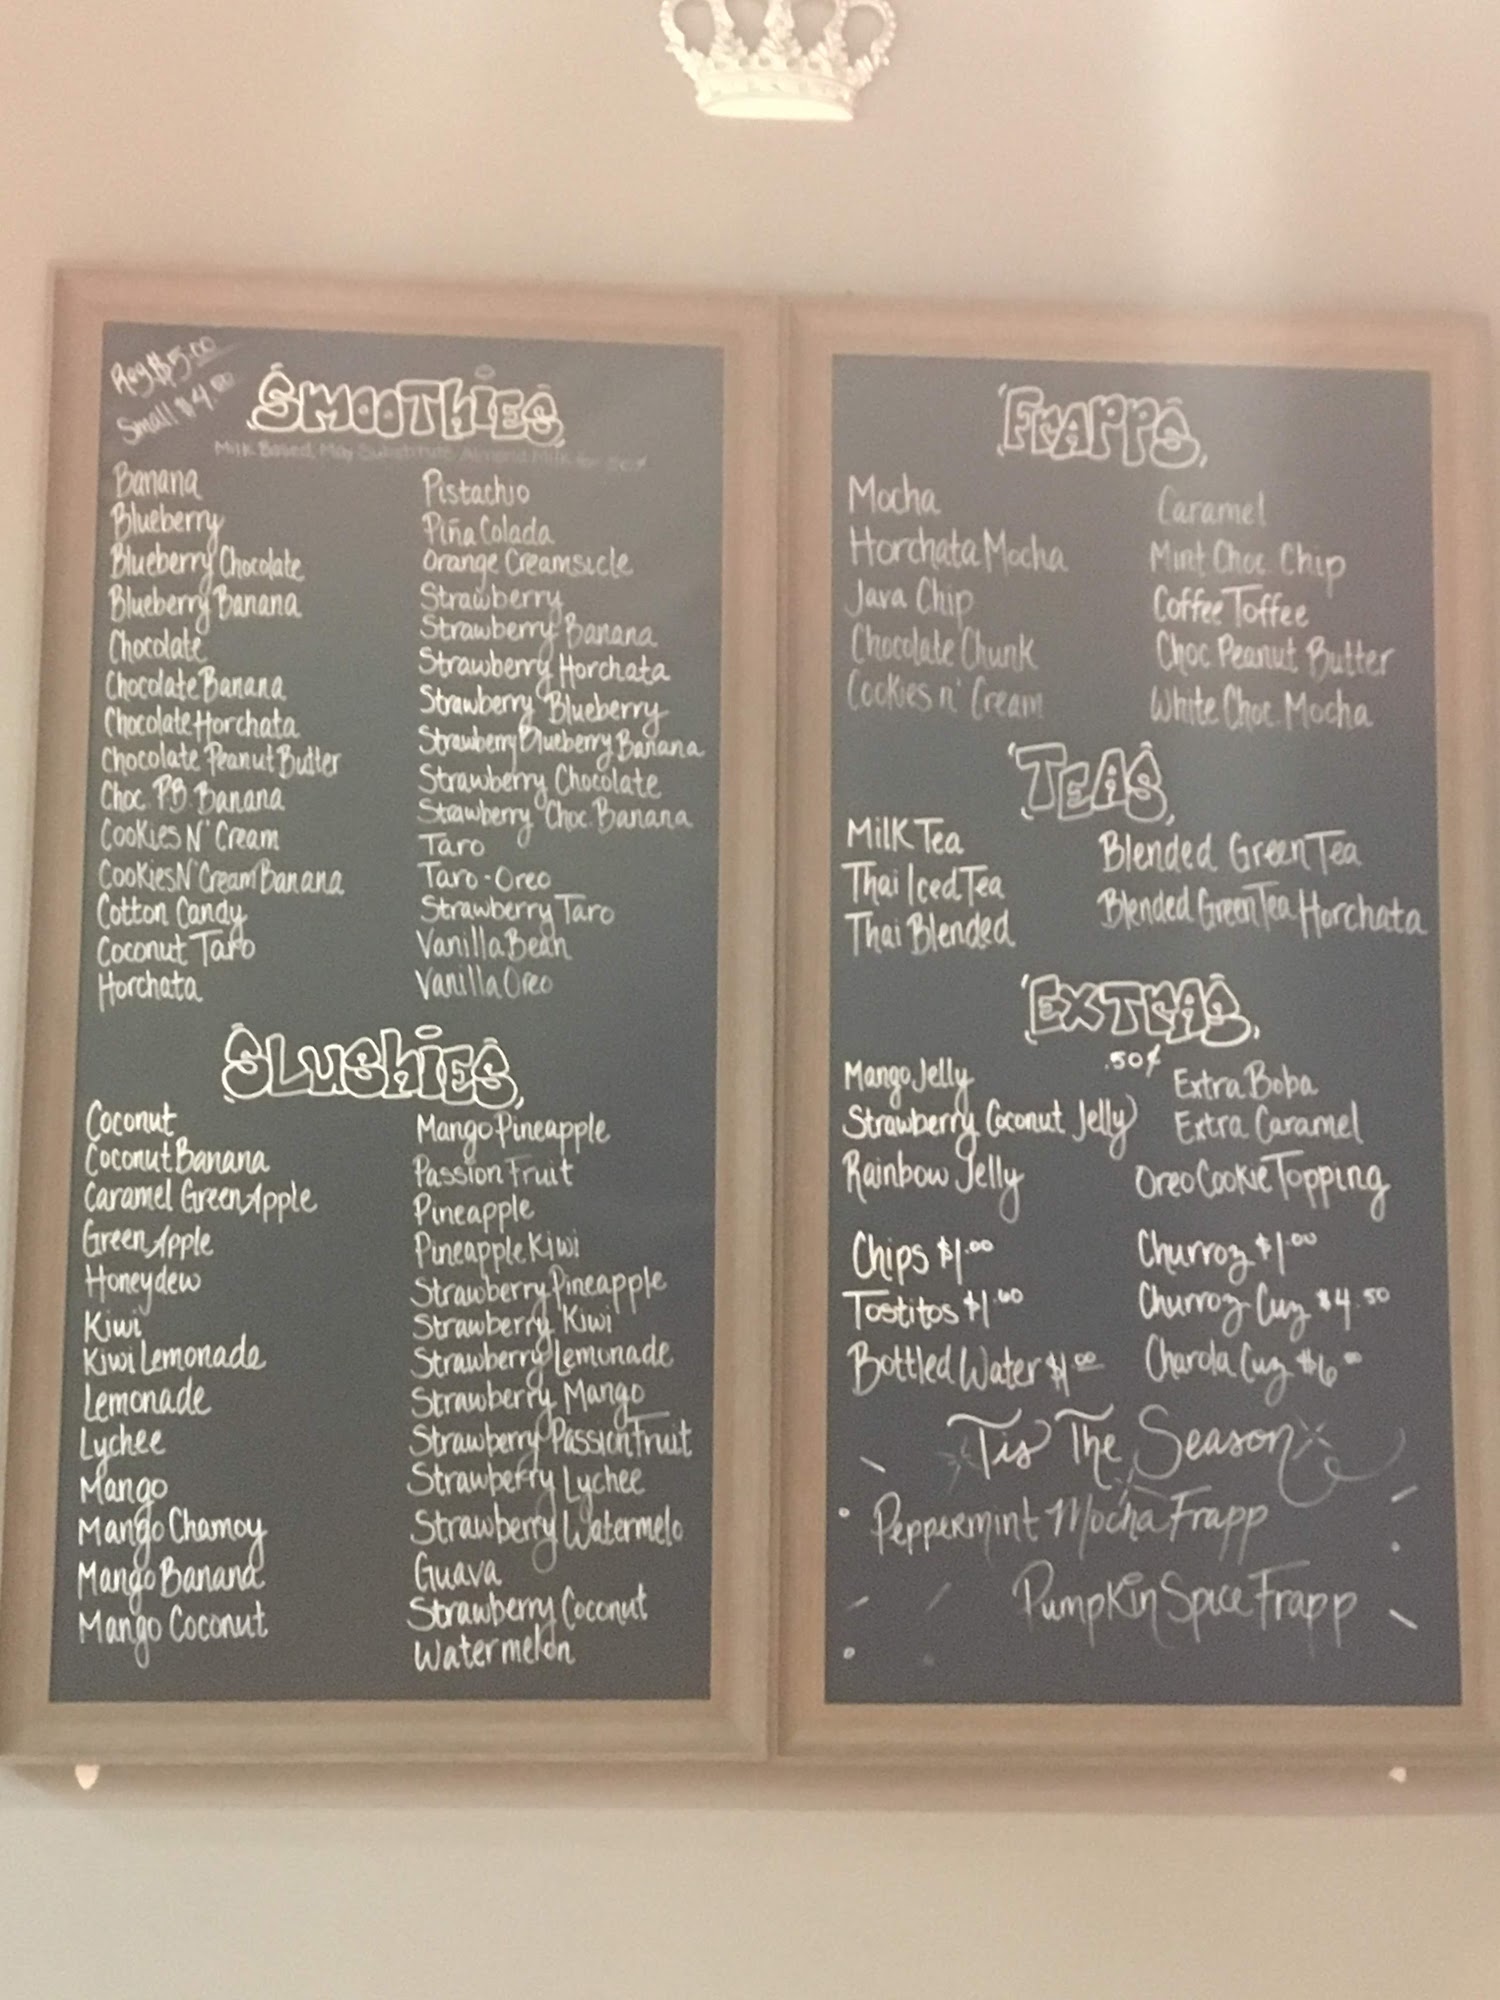 Reg $5.00
Small $4.00
Smoothies
Milk Based, May Substitute Almond Milk for 50¢
Banana
Blueberry
Blueberry Chocolate
Blueberry Banana
Chocolate
Chocolate Banana
Chocolate Horchata
Chocolate Peanut Butter
Choc. PB. Banana
Cookies N' Cream
Cookies N' Cream Banana
Cotton Candy
Coconut Taro
Horchata
Pistachio
Piña Colada
Orange Creamsicle
Strawberry
Strawberry Banana
Strawberry Horchata
Strawberry Blueberry
Strawberry Blueberry Banana
Strawberry Chocolate
Strawberry Choc. Banana
Taro
Taro-Oreo
Strawberry Taro
Vanilla Bean
Vanilla Oreo
Slushies
Coconut
Coconut Banana
Caramel Green Apple
Green Apple
Honeydew
Kiwi
Kiwi Lemonade
Lemonade
Lychee
Mango
Mango Chamoy
Mango Banana
Mango Coconut
Mango Pineapple
Passion Fruit
Pineapple
Pineapple Kiwi
Strawberry Pineapple
Strawberry Kiwi
Strawberry Lemonade
Strawberry Mango
Strawberry Passion Fruit
Strawberry Lychee
Strawberry Watermelo
Guava
Strawberry Coconut
Watermelon
Frapps
Mocha
Horchata Mocha
Java Chip
Chocolate Chunk
Cookies n' Cream
Caramel
Mint Choc. Chip
Coffee Toffee
Choc Peanut Butter
White Choc. Mocha
Teas
Milk Tea
Thai Iced Tea
Thai Blended
Blended Green Tea
Blended Green Tea Horchata
Extras
.50¢
Mango Jelly
Strawberry (Coconut Jelly)
Rainbow Jelly
Extra Boba
Extra Caramel
Oreo Cookie Topping
Chips $1.00
Tostitos $1.60
Bottled Water $1.00
Churroz $1.00
Churroz Cuz $4.50
Charola Cuz $6.00
Tis The Season
Peppermint Mocha Frapp
Pumpkin Spice Frapp